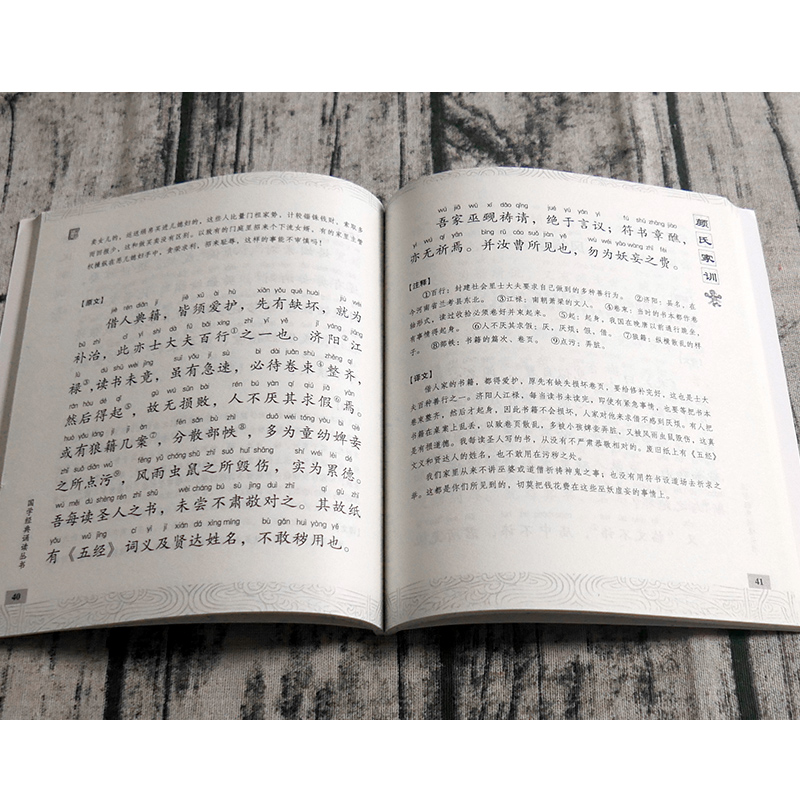 卖女儿的，运送绢帛买进儿媳妇的，这些人比量门祖家势，计较锱铢钱财，索取多
而回报少，这和做买卖没有区别。以致有的门庭里招来个下流女婿，有的家里主管
权操纵在恶儿媳妇手中，贪荣求利，招来耻辱，这样的事能不审慎吗！
【原文】
jiè rén diǎn jí jiē xū ài hù xiān yǒu quē huài jiù wéi
借人典籍，皆须爱护，先有缺坏，就为
bǔ zhì cǐ yì shì dà fū bǎi xíng zhī yī yě jǐ yáng jiāng
补治，此亦士大夫百行①之一也。济阳②江
lù dú shū wèi jìng suī yǒu jí sù bì dài juàn shù zhěng qí
禄③，读书未竟，虽有急速，必待卷束④整齐，
rán hòu dé qǐ gù wú sǔn bài rén bú yàn qí qiú jiǎ yān
然后得起⑤，故无损败，人不厌其求假⑥焉。
huò yǒu láng jí jī àn fēn sàn bù zhì duō wéi tóng yòu bì qiè
或有狼籍几案⑦，分散部帙⑧，多为童幼婢妾
zhī suǒ diǎn wū fēng yǔ chóng shǔ zhī suǒ huǐ shāng shí wéi lěi dé
之所点污⑨，风雨虫鼠之所毁伤，实为累德。
wú měi dú shèng rén zhī shū wèi cháng bú sù jìng duì zhī qí gù zhǐ
吾每读圣人之书，未尝不肃敬对之。其故纸
yǒu wǔ jīng cí yì jí xián dá xìng míng bù gǎn huì yòng yě
有《五经》词义及贤达姓名，不敢秽用也。
国学经典诵读丛书
40
wú jiā wū xí dǎo qǐng jué yú yán yì fú shū zhāng jiào
吾家巫觋祷请，绝于言议；符书章醮，
yì wú qí yān bìng rǔ cáo suǒ jiàn yě wù wéi yāo wàng zhī fèi
亦无祈焉。并汝曹所见也，勿为妖妄之费。
【注释】
①百行：封建社会里士大夫要求自己做到的多种善行为。 ②济阳：县名，在
今河南省兰考县东北。 ③江禄：南朝萧梁的文人。 ④卷束：当时的书本都作卷
轴形式，读过收拾必须卷好并束起来。 ⑤起：起身，我国在晚唐以前通行跪坐，
有事情得起身。 ⑥人不厌其求假：厌，厌烦；假，借。 ⑦狼籍：纵横散乱的样
子。 ⑧部帙：书籍的篇次、卷页。 ⑨点污：弄脏。
【译文】
借人家的书籍，都得爱护，原先有缺失损坏卷页，要给修补完好，这也是士大
夫百种善行之一。济阳人江禄，每当读书未读完，即使有紧急事情，也要等把书本
卷束整齐，然后才起身，因此书籍不会损坏，人家对他来求借不感到厌烦。有人把
书籍在桌案上乱丢，以致卷页散乱，多被小孩婢妾弄脏，又被风雨虫鼠毁伤，这真
是有损道德。我每读圣人写的书，从没有不严肃恭敬相对的。废旧纸上有《五经》
文义和贤达人的姓名，也不敢用在污秽之处。
我们家里从来不讲巫婆或道僧祈祷神鬼之事；也没有用符书设道场去祈求之
举。这都是你们所见到的，切莫把钱花费在这些巫妖虚妄的事情上。
颜氏家训
41